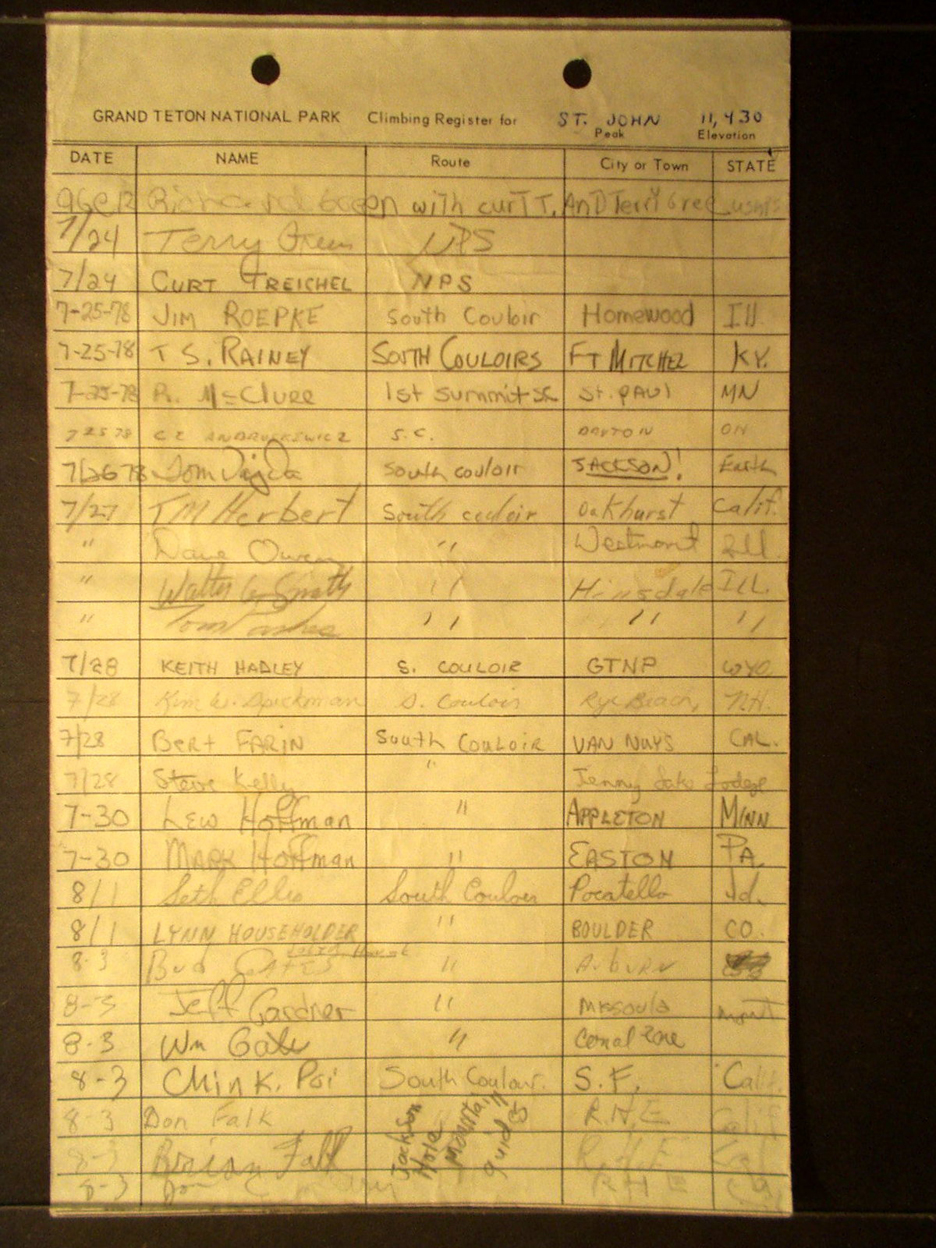 GRAND TETON NATIONAL PARK Climbing Register for ST. JOHN 11,430
Peak Elevation
DATE NAME Route City or Town STATE
with curt T. AnD Terry Gree
7/24 Terry Green NPS
7/24 CURT TREICHEL NPS
7-25-78 JIM ROEPKE South Couloir Homewood Ill
7-25-78 T S. RAINEY SOUTH COULOIRS FT MITCHEL KY.
7-25-78 R. McClure 1st summit SC St. PAUl MN
7 25 78 S.C. DAYTON OH
7/26 78 Tom Vajda South couloir JACKSON! Earth
7/27 TM Herbert South couloir Oakhurst Calif.
" Dave Owen " Westmont Ill.
" Walter G Smith " Hinsdale ILL.
" Tom " " "
7/28 KEITH HADLEY S. COULOIR GTNP WYO.
7/28 Kim W. Spickman S. Couloir Rye Beach, N.H.
7/28 Bert FARIN South Couloir VAN NUYS CAL.
7/28 Steve Kelly " Jenny Lake Lodge
7-30 Lew Hoffman " APPLETON MINN
7-30 MARK Hoffman " EASTON PA.
8/1 Seth Ellis South Couloir Pocatello Id.
8/1 LYNN HOUSEHOLDER " BOULDER CO.
8-3 Bud CATES " Auburn
8-3 Jeff Gardner " Missoula mont
8-3 Wm Gale " Canal Zone
8-3 Chin K. Poi South Couloir. S.F. Calif.
8-3 Don Falk R.H.E Calif
8-3 Brian Falk Jackson Hole Mountain guides R.H.E Cal
8-3 R H E Ca